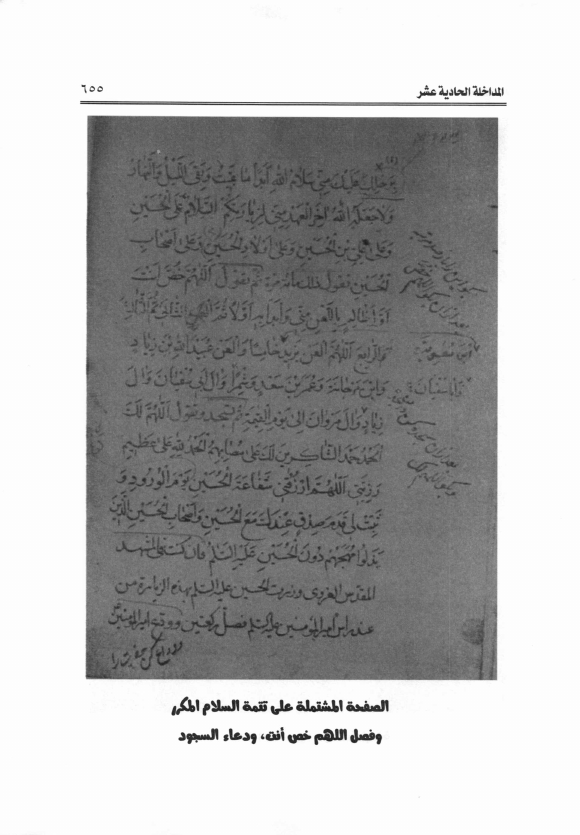 المداخلة الحادية عشر
٦٥٥
عليك مني سلام الله أبدا ما بقيت وبقي الليل والنهار
ولا جعله الله آخر العهد مني لزيارتكم السلام على الحسين
وعلى علي بن الحسين وعلى أولاد الحسين وعلى أصحاب
الحسين تقول ذلك مائة مرة ثم تقول اللهم خص أنت
أول ظالم باللعن مني وأبدأ به أولا ثم الثاني ثم الثالث
والرابع اللهم العن يزيد خامسا والعن عبيد الله بن زياد
وابن مرجانة وعمر بن سعد وشمرا وآل أبي سفيان وآل
زياد وآل مروان إلى يوم القيمة ثم تسجد وتقول اللهم لك
الحمد حمد الشاكرين لك على مصابهم الحمد لله على عظيم
رزيتي اللهم ارزقني شفاعة الحسين يوم الورود و
ثبت لي قدم صدق عندك مع الحسين وأصحاب الحسين الذين
بذلوا مهجهم دون الحسين عليه السلم فان كنت في المشهد
المقدس الغروي وزرت الحسين عليه السلم بهذه الزيارة من
عند رأس أمير المؤمنين عليه السلم فصل ركعتين وودع أمير المؤمنين
الصفحة المشتملة على تتمة السلام المكرر
وفصل اللهم خص أنت، ودعاء السجود